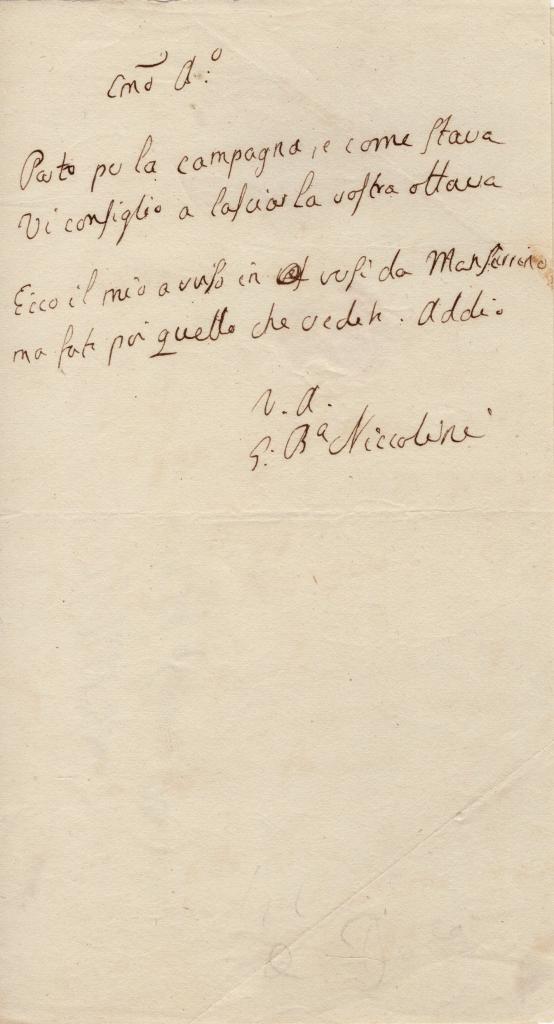 Cmo A.o
Parto per la campagna, e come stava
Vi consiglio a lasciar la vostra ottava
Ecco il mio avviso in versi da
ma fate poi quello che vedete. Addio
V. A.
G. Ba Niccolini